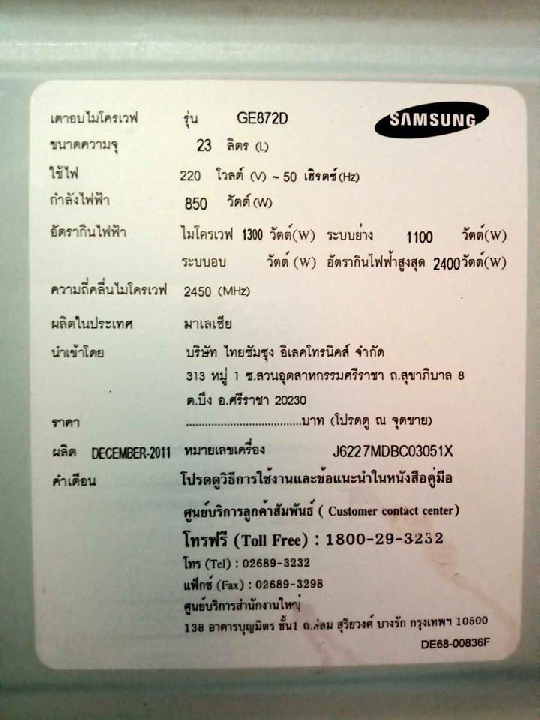 เตาอบไมโครเวฟ รุ่น GE872D SAMSUNG
ขนาดความจุ 23 ลิตร (L)
ใช้ไฟ 220 โวลต์ (V) ~ 50 เฮิรตซ์(Hz)
กำลังไฟฟ้า 850 วัตต์ (W)
อัตรากินไฟฟ้า ไมโครเวฟ 1300 วัตต์(W) ระบบย่าง 1100 วัตต์(W)
ระบบอบ วัตต์ (W) อัตรากินไฟฟ้าสูงสุด 2400วัตต์(W)
ความถี่คลื่นไมโครเวฟ 2450 (MHz)
ผลิตในประเทศ มาเลเซีย
นำเข้าโดย บริษัท ไทยซัมซุง อิเลคโทรนิคส์ จำกัด
313 หมู่ 1 ซ.สวนอุตสาหกรรมศรีราชา ถ.สุขาภิบาล 8
ต.บึง อ.ศรีราชา 20230
ราคา ..................................บาท (โปรดดู ณ จุดขาย)
ผลิต DECEMBER-2011 หมายเลขเครื่อง J6227MDBC03051X
คำเตือน โปรดดูวิธีการใช้งานและข้อแนะนำในหนังสือคู่มือ
ศูนย์บริการลูกค้าสัมพันธ์ ( Customer contact center)
โทรฟรี (Toll Free) : 1800-29-3232
โทร (Tel) : 02689-3232
แฟ็กซ์ (Fax) : 02689-3298
ศูนย์บริการสำนักงานใหญ่
138 อาคารบุญมิตร ชั้น1 ถ.สีลม สุริยวงศ์ บางรัก กรุงเทพฯ 10500
DE68-00836F